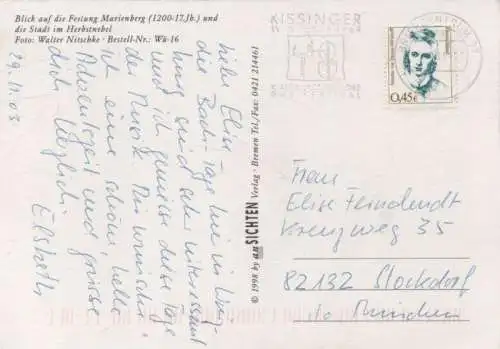 Blick auf die Festung Marienberg (1200-17.Jh.) und
die Stadt im Herbstnebel
Foto: Walter Nitschke · Bestell-Nr.: Wü-16
29.11.03
Liebe Elise,
die Bach-Tage hier in Würz-
burg sind sehr interessant
und ich genieße diese Tage
der Musik. Dir wünsche
ich eine schöne, helle
Adventszeit und grüße
dich herzlich
Elsbeth
© 1998 by ANSICHTEN Verlag · Bremen Tel./Fax: 0421 214461
KISSINGER
0,45€
Frau
Elise Feindendt
Kreuzweg 35
82132 Stockdorf